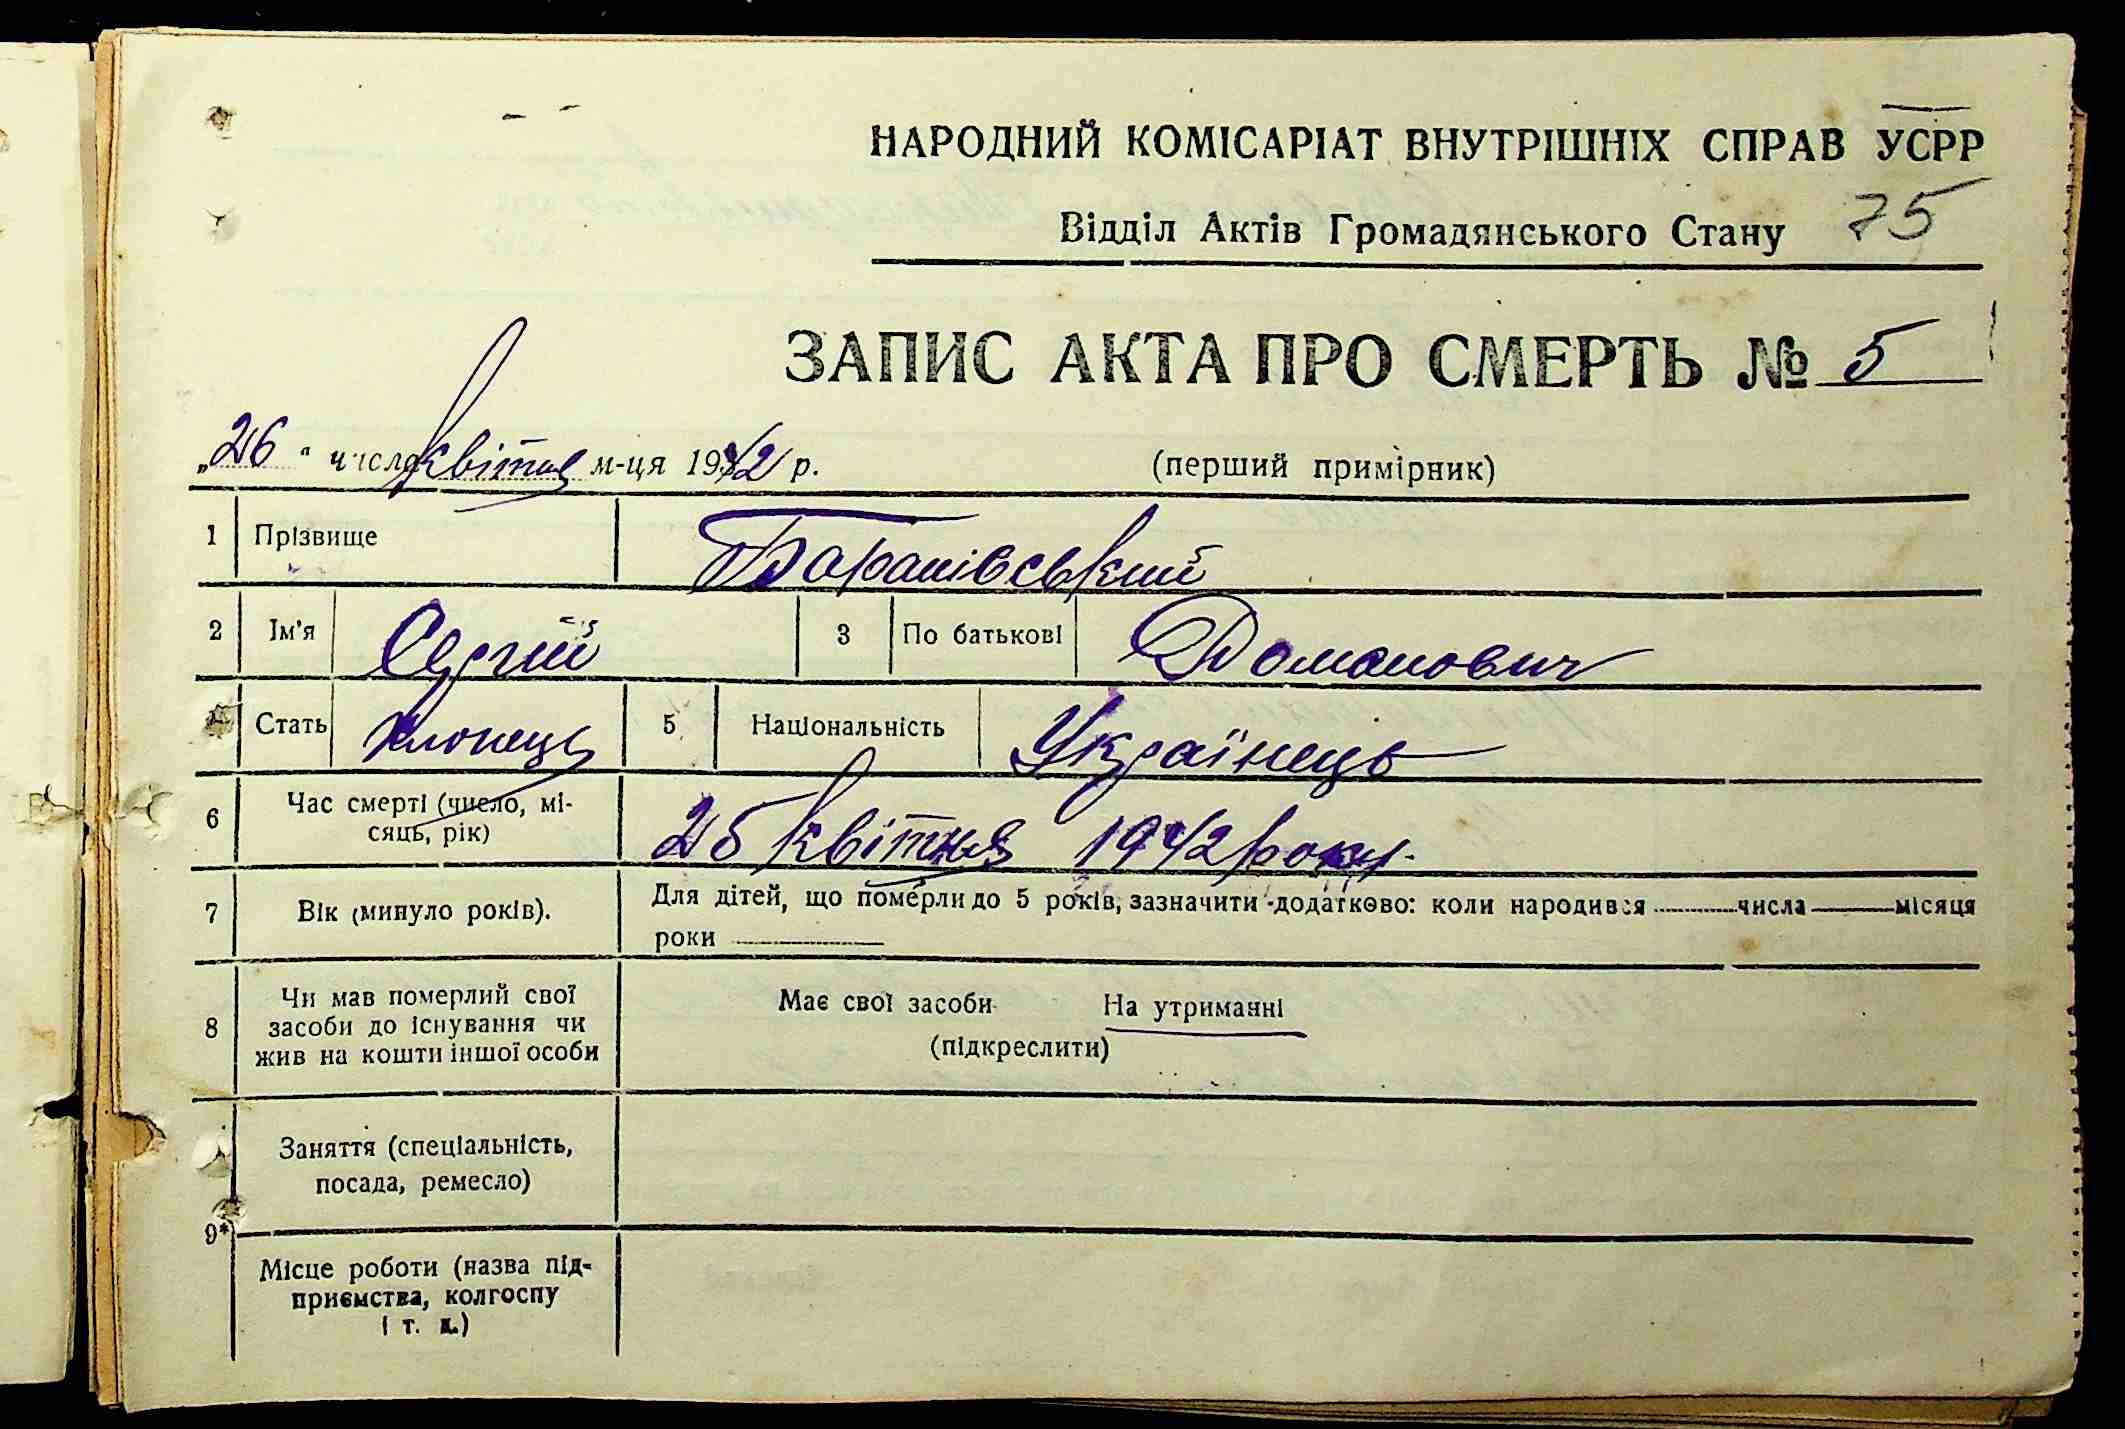 НАРОДНИЙ КОМІСАРІАТ ВНУТРІШНІХ СПРАВ УСРР
Відділ Актів Громадянського Стану 75
ЗАПИС АКТА ПРО СМЕРТЬ № 5
„26“ числа квітня м-ця 1942 р. (перший примірник)
1 Прізвище Баранівський
2 Ім'я Сергій 3 По батькові Доманович
4 Стать Хлопець 5 Національність Українець
6 Час смерті (число, мі-
сяць, рік) 25 квітня 1942 року.
7 Вік (минуло років). Для дітей, що померли до 5 років, зазначити додатково: коли народився числа місяця
роки
8 Чи мав померлий свої
засоби до існування чи
жив на кошти іншої особи
Має свої засоби На утриманні
(підкреслити)
Заняття (спеціальність,
посада, ремесло)
9*)
Місце роботи (назва під-
приємства, колгоспу
і т. д.)